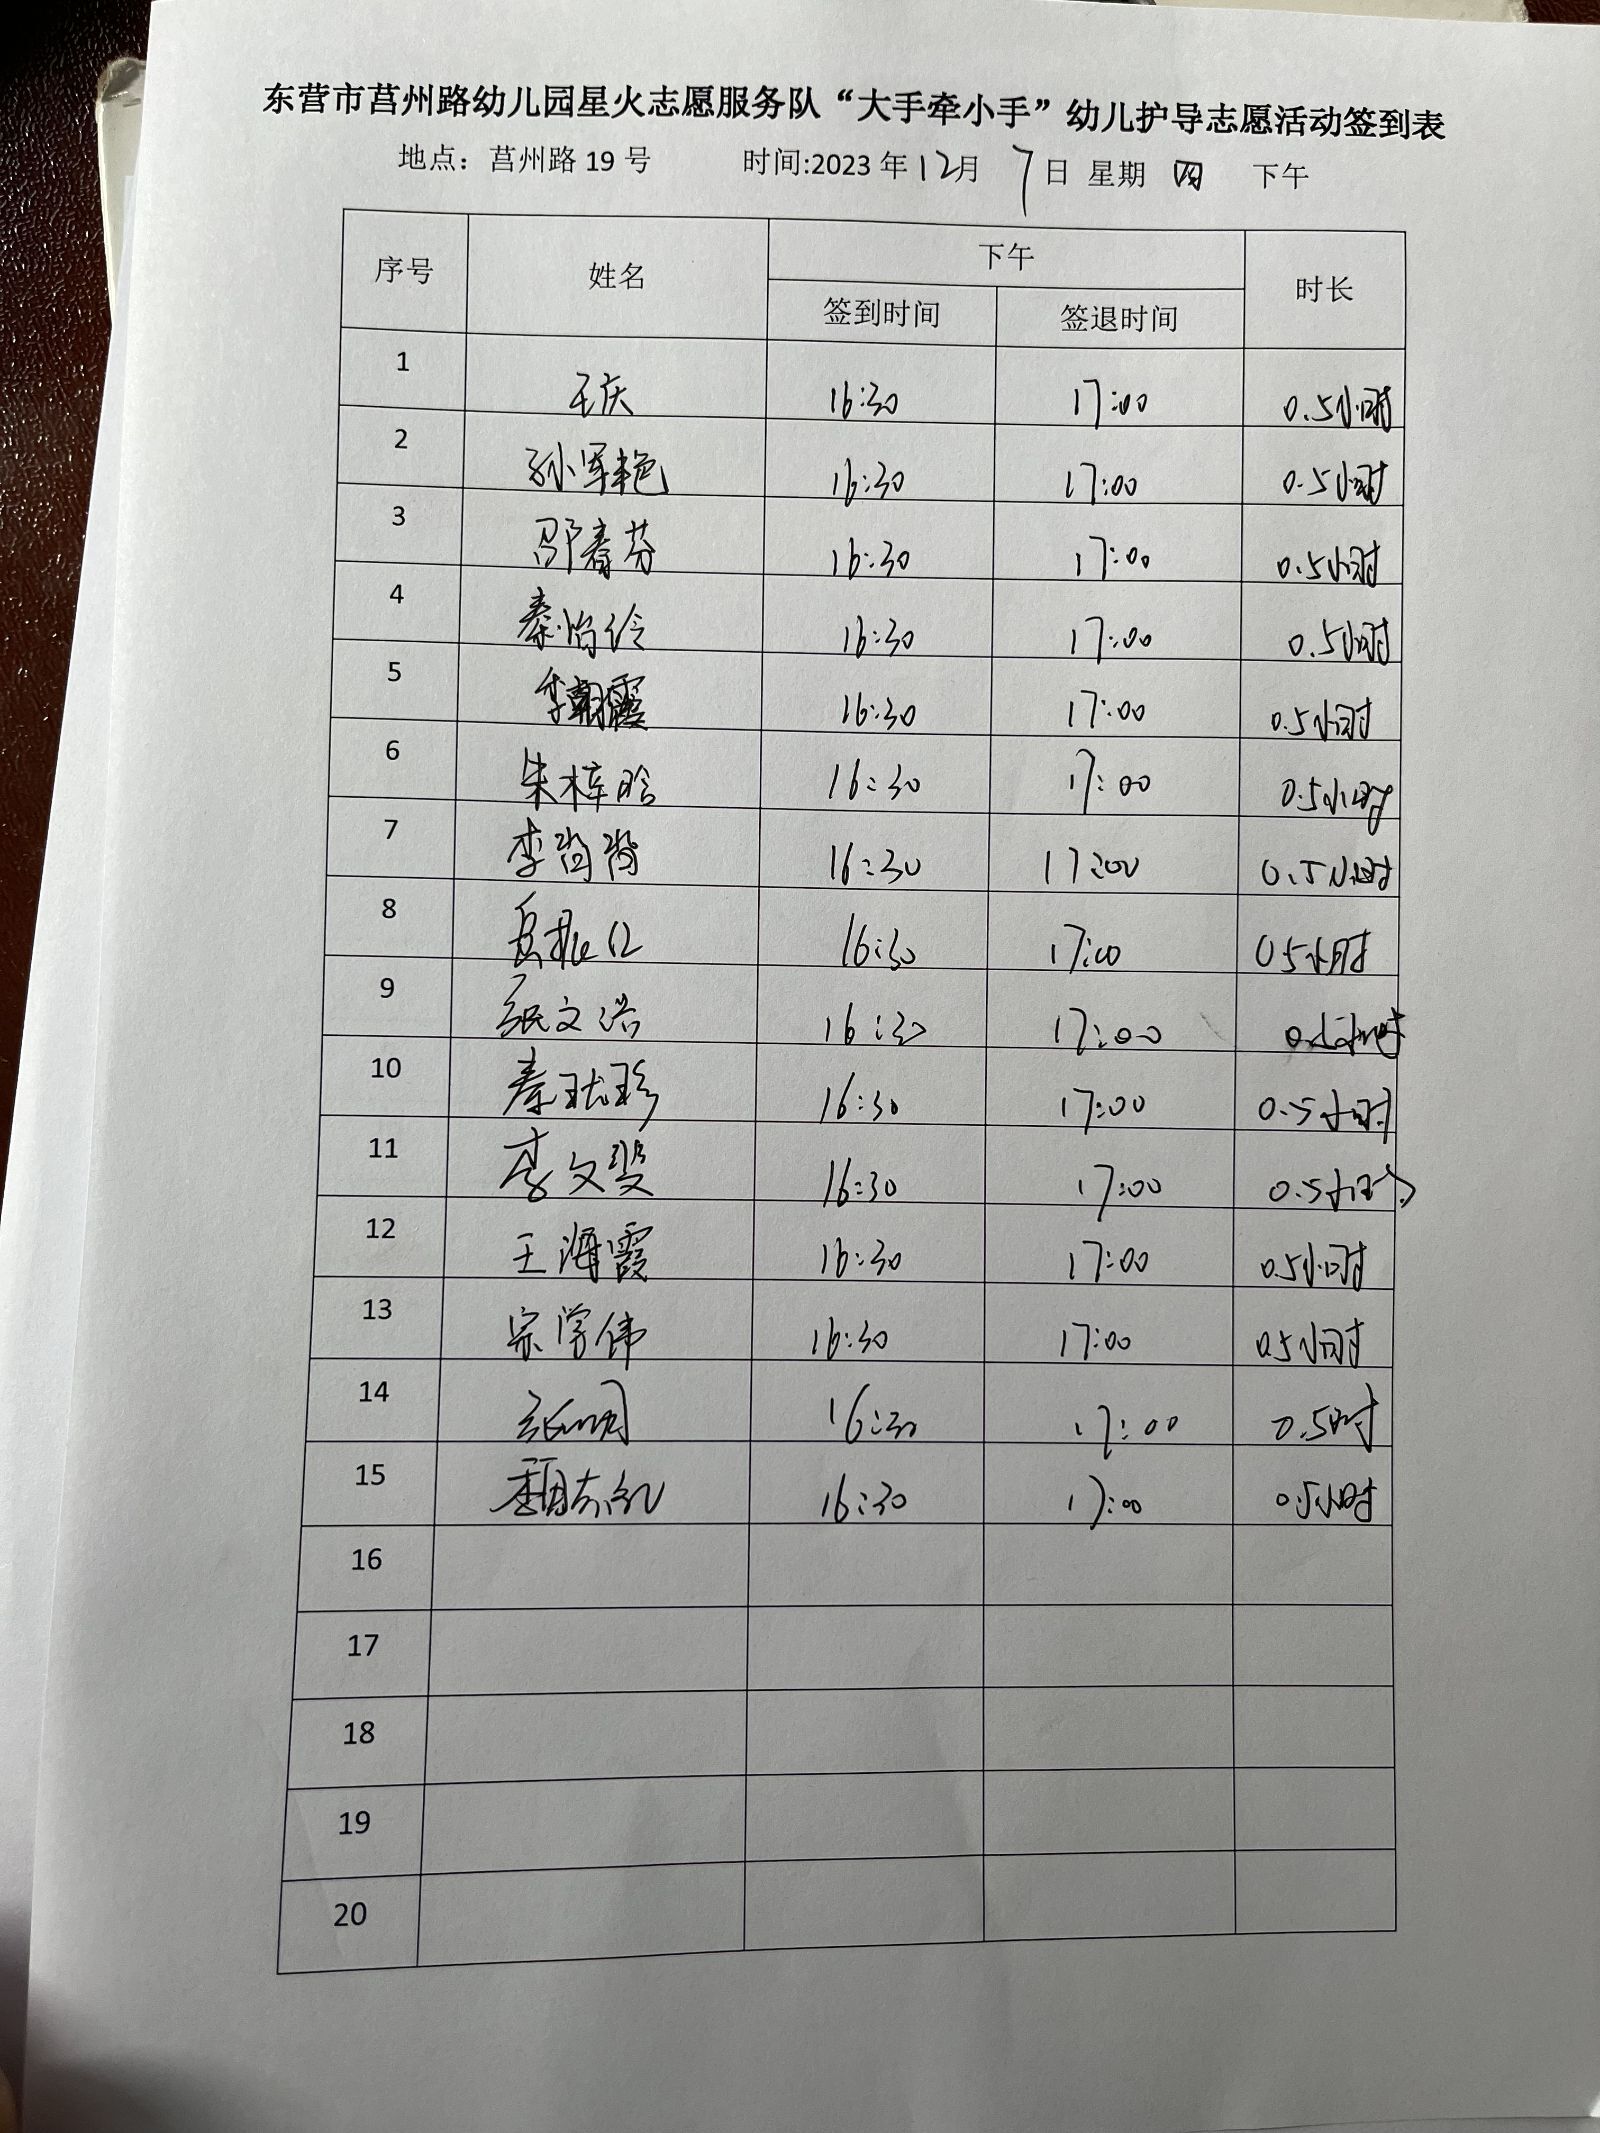 东营市莒州路幼儿园星火志愿服务队“大手牵小手”幼儿护导志愿活动签到表
地点：莒州路 19 号 时间:2023 年 12 月 7 日 星期 四 下午
序号 姓名 下午 时长
签到时间 签退时间
1 王庆 16:30 17:00 0.5小时
2 孙军艳 16:30 17:00 0.5小时
3 邵春芬 16:30 17:00 0.5小时
4 秦怡伶 16:30 17:00 0.5小时
5 李朝霞 16:30 17:00 0.5小时
6 朱梓晗 16:30 17:00 0.5小时
7 李尚尚 16:30 17:00 0.5小时
8 16:30 17:00 0.5小时
9 张文浩 16:30 17:00
10 秦珑珍 16:30 17:00 0.5小时
11 李文斐 16:30 17:00 0.5小时
12 王海霞 16:30 17:00 0.5小时
13 宗学伟 16:30 17:00 0.5小时
14 16:30 17:00 0.5时
15 16:30 17:00 0.5小时
16
17
18
19
20